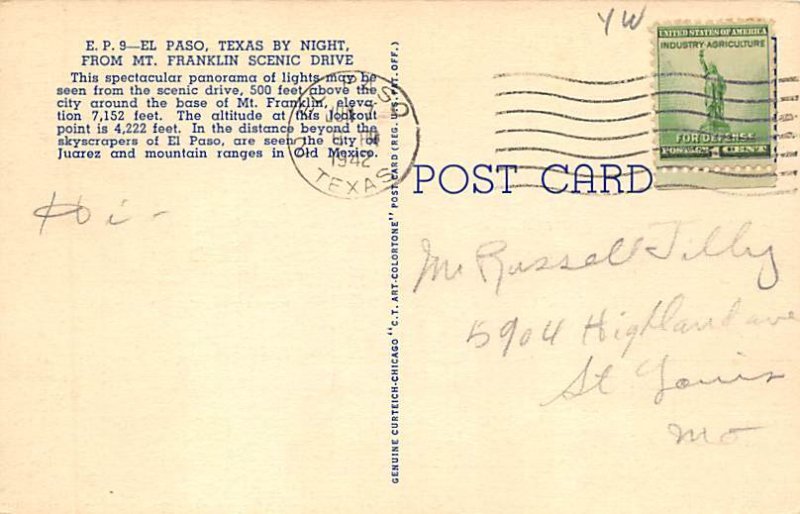 E. P. 9—EL PASO, TEXAS BY NIGHT,
FROM MT. FRANKLIN SCENIC DRIVE
This spectacular panorama of lights may be
seen from the scenic drive, 500 feet above the
city around the base of Mt. Franklin, eleva-
tion 7,152 feet. The altitude at this lookout
point is 4,222 feet. In the distance beyond the
skyscrapers of El Paso, are seen the city of
Juarez and mountain ranges in Old Mexico.
Hi -
GENUINE CURTEICH-CHICAGO "C.T. ART-COLORTONE" POST CARD (REG. U.S. PAT. OFF.)
EL PASO
JAN
1942
TEXAS
YW
UNITED STATES OF AMERICA
INDUSTRY·AGRICULTURE
FOR DEFENSE
POSTAGE 1 CENT
POST CARD
Mr Russell Tilly
5904 Highland ave
St Louis
Mo